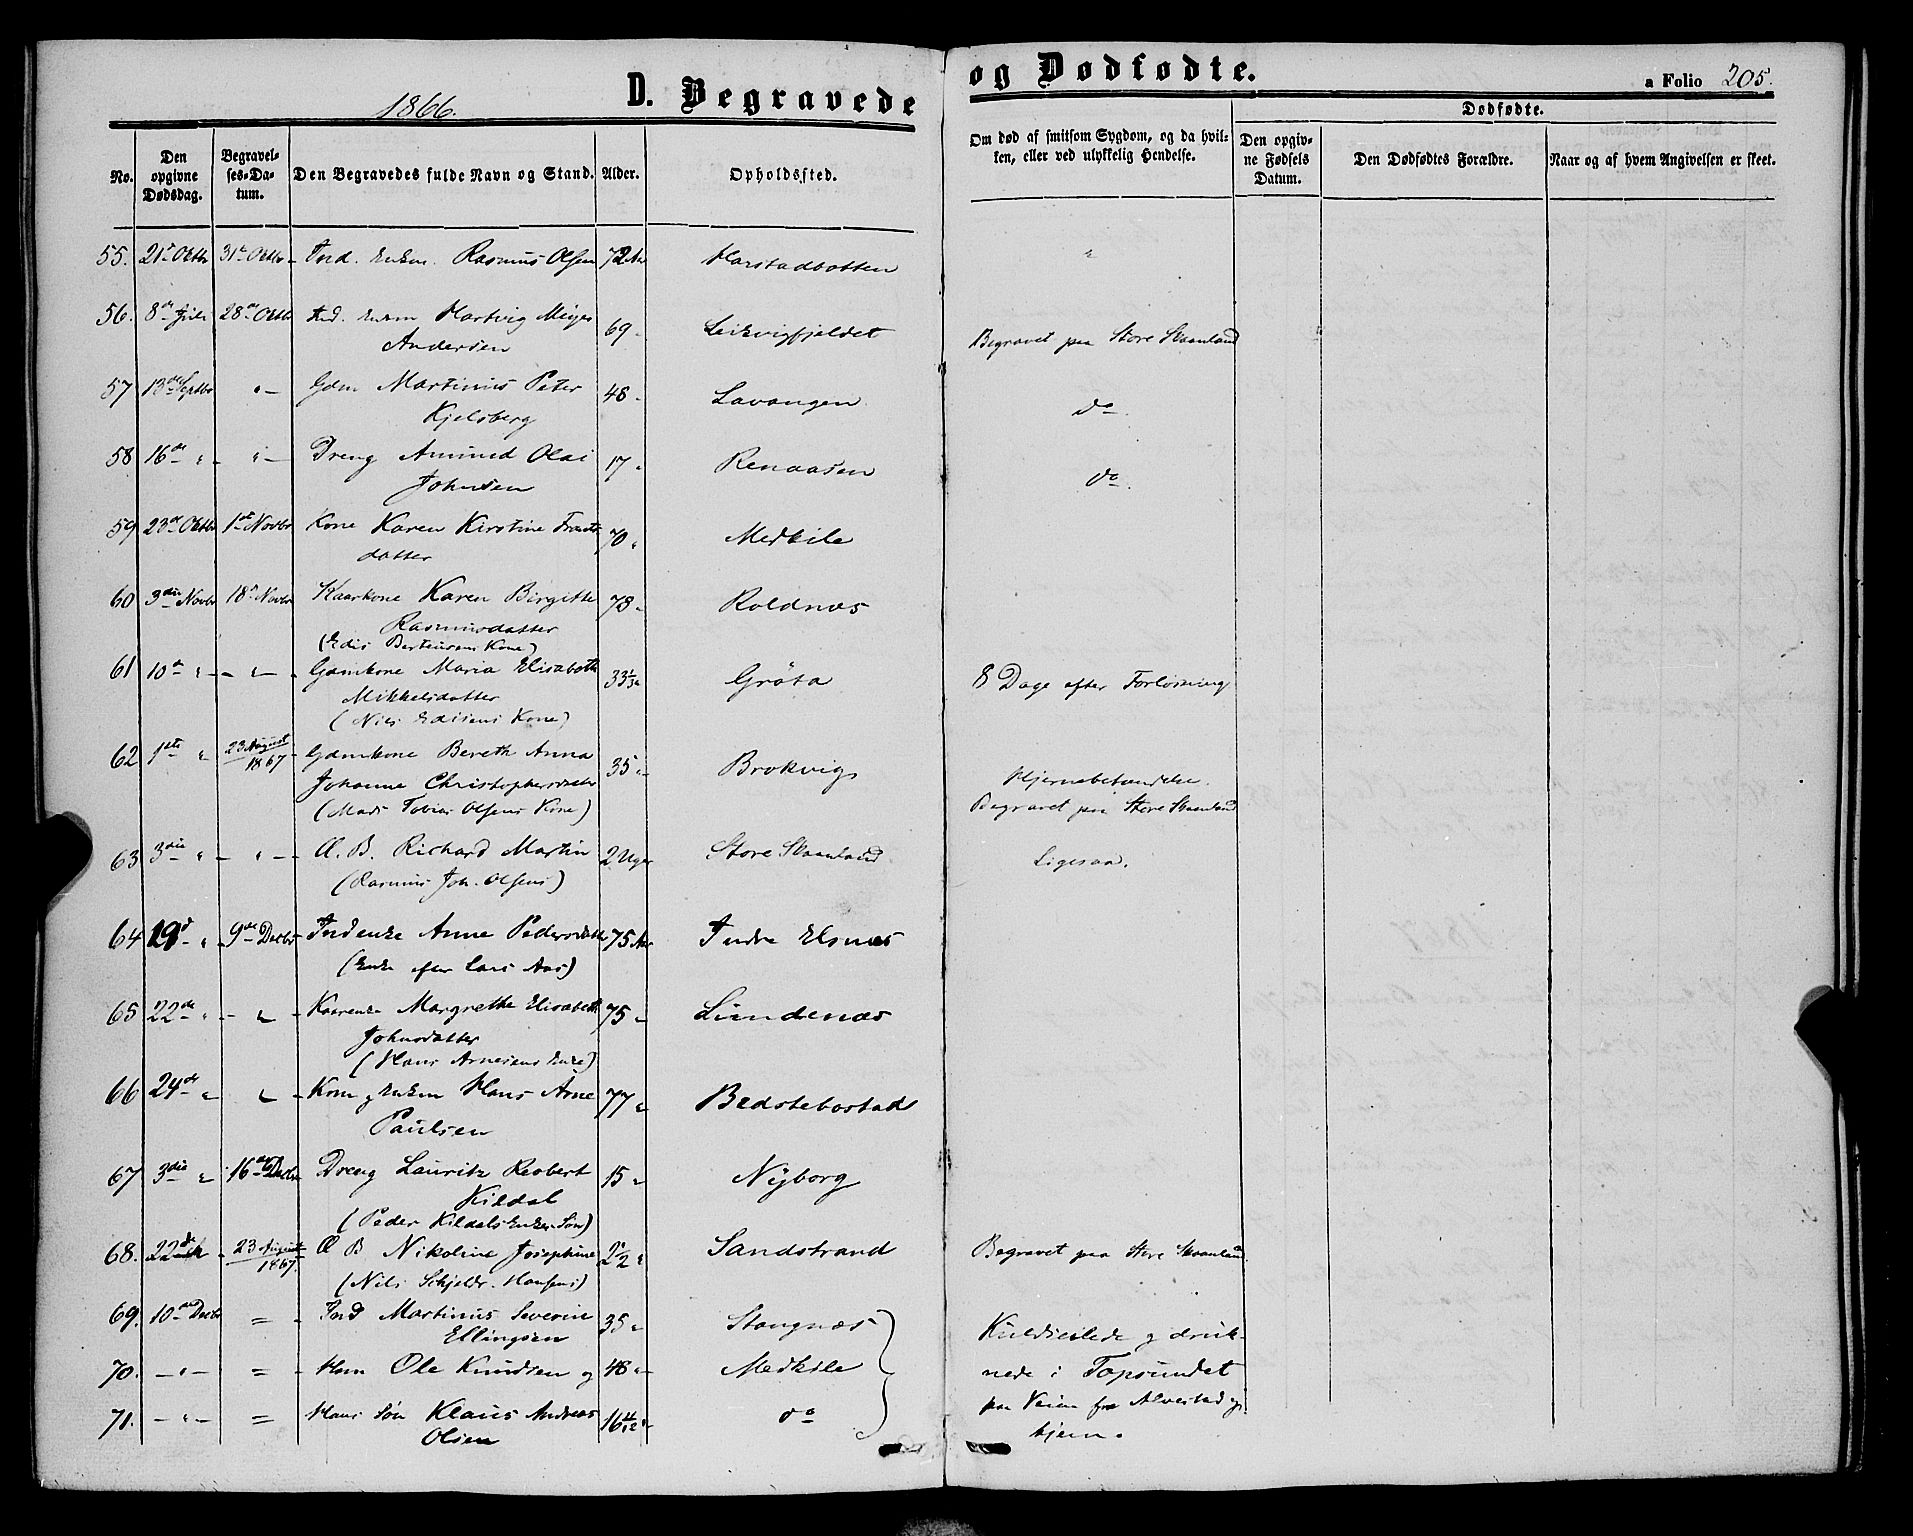 1866.
D. Begravede og Dødfødte.
a Folio 205.
No.
Den opgivne Dødsdag.
Begravelses-Datum.
Den Begravedes fulde Navn og Stand.
Alder.
Opholdssted.
Om død af smitsom Sygdom, og da hvilken, eller ved ulykkelig Hendelse.
Dødfødte.
Den opgivne Fødsels Datum.
Den Dødfødtes Forældre.
Naar og af hvem Angivelsen er skeet.
55. 21de Octbr 31te Octbr Ind. Enkem. Rasmus Olsen 72 Aar Harstadbotten "
56. 8de Juli 28de Octbr Ind. Enkem Hartvig Meyer 69 " Leikvigfjeldet Begravet paa Store Skaanland
Andersen
57 13de Septbr " Gdm Martinus Peter 48 " Lavangen do.
Kjelsberg
58 16de " " Dreng Amund Olai 17 " Renaasen do.
Johnsen
59 23de Octbr 1ste Novbr Kone Karen Kirstine Frants 70 " Medkile
datter
60 3die Novbr 18de Novbr Kaarkone Karen Birgitte 78 " Roldnæs
Rasmusdatter
(Edis Berteusens Kone)
61 10de " " Gdmkone Maria Elisabeth 33 Grøta 8 Dage efter Forløsning
Mikkelsdatter
(Nils Edisens Kone)
62 1ste " 23 August 1867 Gdmkone Bereth Anna 35 " Brokvig Hjernebetændelse.
Johanne Christophersdatter Begravet paa Store Skaanland
(Mads Tobias Olsens Kone)
63 3die " " Æ. B. Richard Martin 2 Uger Store Skaanland Ligesaa.
(Rasmus Joh. Olsens)
64 19d " 9de Decbr Indenke Anne Pedersdatter 75 Aar Indre Elsnæs
(Enke efter Lars Aas)
65 22de " " Kaarenke Margrethe Elisabeth 75 " Lundenæs
Johnsdatter
(Hans Arnesens Enke)
66 24de " " Kom g Enkem Hans Arne 77 " Bedstebostad
Paulsen
67 3die " 16de Decbr Dreng Lauritz Reobert 15 " Nyborg
Kildal
(Peder Kildals Enkes Søn)
68. 22de 23 August 1867. Æ B Nikoline Josephine 2 1/2 " Sandstrand Begravet paa Store Skaanland
(Nils Schjeldr. Hansens)
69. 10de Decbr = Ind Martinus Severin 35 " Stangnæs Kuldseilede g druk-
Ellingsen
70. " = Hm Ole Knudsen og 48 " Medkile nede i Topsundet
71. " = Hans Søn Klaus Andreas 16 do paa Veien fra Alvestad g
Olsen hjem.